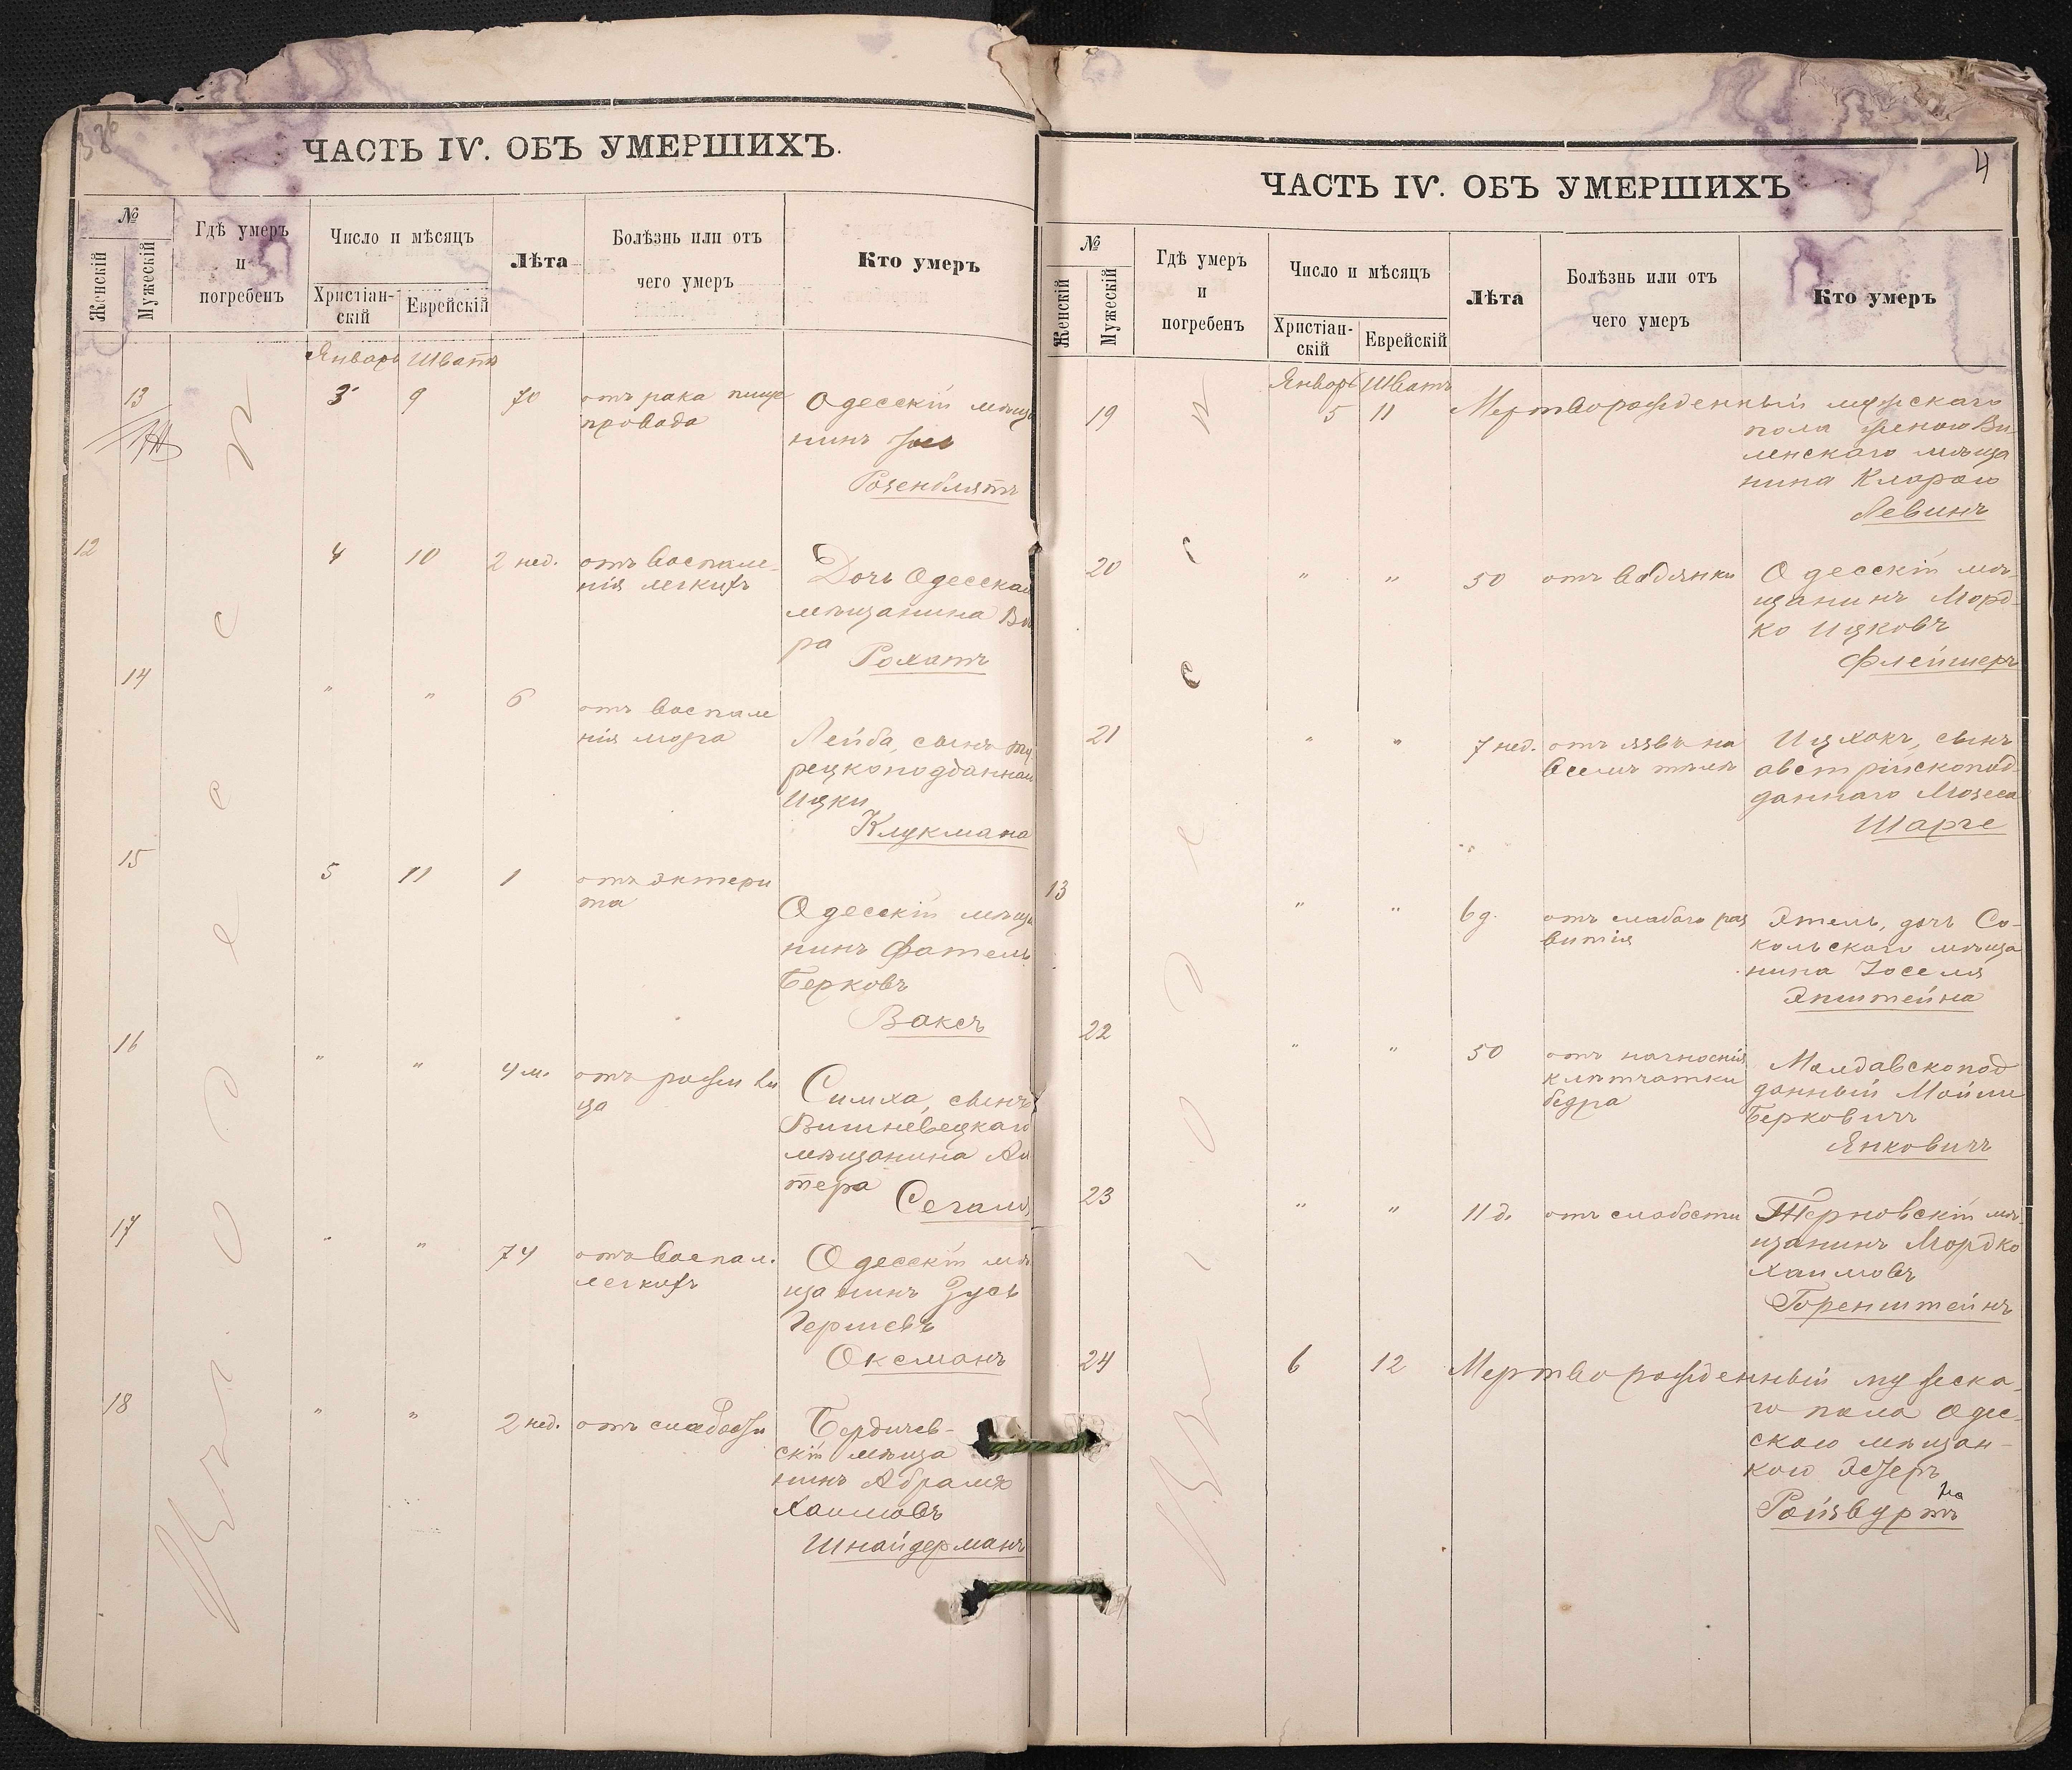 336
ЧАСТЬ IV. ОБЪ УМЕРШИХЪ.
№
Женскій
Мужескій
Гдѣ умеръ
и
погребенъ
Число и мѣсяцъ
Христіан-
скій
Еврейскій
Лѣта
Болѣзнь или отъ
чего умеръ
Кто умеръ
Январь Шватъ
13 3 9 70 отъ рака пище Одесскій мѣща
провода нинъ
Розенблятъ
12 4 10 2 нед. отъ воспале- Дочь Одесскаго
нія легкихъ мѣщанина Во
ра Рохатъ
14 " " 6 отъ воспале
нія мозга Лейба, сынъ ту
рецкоподданнаго
Ицки
Клукмана
15 5 11 1 отъ энтери
та Одесскій мѣща
нинъ Фатель
Берковъ
Ваксъ
16 " " 4 м. отъ рожи ли Симха, сынъ
ца Вишневецкаго
мѣщанина Ал
тера Сегаль
17 " " 74 отъ воспал. Одесскій мѣ
легкихъ щанинъ Зусь
Гершевъ
Оксманъ
18 " " 2 нед. отъ слабости Бердичев-
скій мѣща
нинъ Абрамъ
Хаимовъ
Шнайдерманъ
въ г. Одессѣ
4
ЧАСТЬ IV. ОБЪ УМЕРШИХЪ
№
Женскій
Мужескій
Гдѣ умеръ
и
погребенъ
Число и мѣсяцъ
Христіан-
скій
Еврейскій
Лѣта
Болѣзнь или отъ
чего умеръ
Кто умеръ
Январь Шватъ
19 5 11 Мертворожденный мужескаго
пола женою Ви-
ленскаго мѣща
нина Кларою
Левинъ
20 " " 50 отъ водянки Одесскій мѣ-
щанинъ Морд-
ко Ицковъ
Флейшеръ
21 " " 7 нед. отъ язвъ на Ицхокъ, сынъ
всемъ тѣлѣ австрійскопод-
даннаго Мозеса
Шарге
13 " " 6 д. отъ слабаго раз Этель, дочь Со-
витія кольскаго мѣща
нина Іоселя
Эпштейна
22 " " 50 отъ нагноенія Молдавскопод
клѣтчатки данный Мойше
бедра Берковичъ
Янковичъ
23 " " 11 д. отъ слабости Терновскій мѣ-
щанинъ Мордко
Хаимовъ
Горенштейнъ
24 6 12 Мертворожденный мужеска-
го пола Одес-
скою мѣщан-
кою Эстеръ
Ройзвуртъ
въ г. Одессѣ